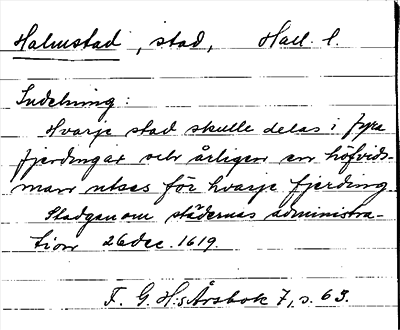 Halmstad, stad, Hall. l.
Indelning:
Hvarje stad skulle delas i fyra
fjerdingar och årligen en höfvids-
man utses för hvarje fjerding.
Stadgan om städernas administra-
tion 26 dec. 1619.
F. G. H:s Årsbok 7, s. 63.